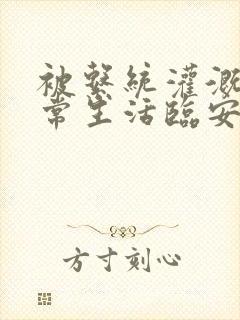 被繫統灌溉
常生活臨安
方寸刻心